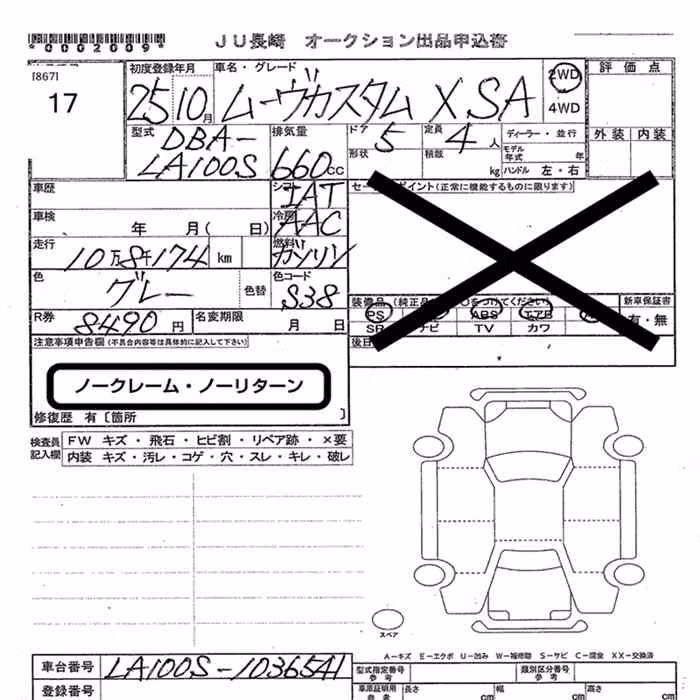 *0002009*
JU長崎 オークション出品申込書
[867]
17
初度登録年月 車名・グレード
25 10月 ムーヴカスタム X SA
2WD
4WD
評価点
外装 内装
型式 DBA-LA100S
排気量 660cc
ドア 5
形状
定員 4人
積載 kg
ディーラー・並行
モデル年式 年
ハンドル 左・右
車歴
シフト IAT
車検 年 月( 日)
冷房 AAC
走行 10万8千174 km
燃料 ガソリン
色 グレー 色替
色コード S38
R券 8490円
名変期限 月 日
セールスポイント(正常に機能するものに限ります)
装備品(純正品 ○をつけてください)
新車保証書
PS ABS エアB
有・無
SR ナビ TV カワ
後日
注意事項申告欄(不具合内容等は具体的に記入して下さい)
ノークレーム・ノーリターン
修復歴 有〔箇所 〕
検査員記入欄
FW キズ・飛石・ヒビ割・リペア跡・×要
内装 キズ・汚レ・コゲ・穴・スレ・キレ・破レ
スペア
A-キズ E-エクボ U-凹み W-補修跡 S-サビ C-腐食 XX-交換済
車台番号 LA100S-1036541
登録番号
型式指定番号 参考
類別区分番号 参考
車庫証明用 参考
長さ cm
幅 cm
高さ cm